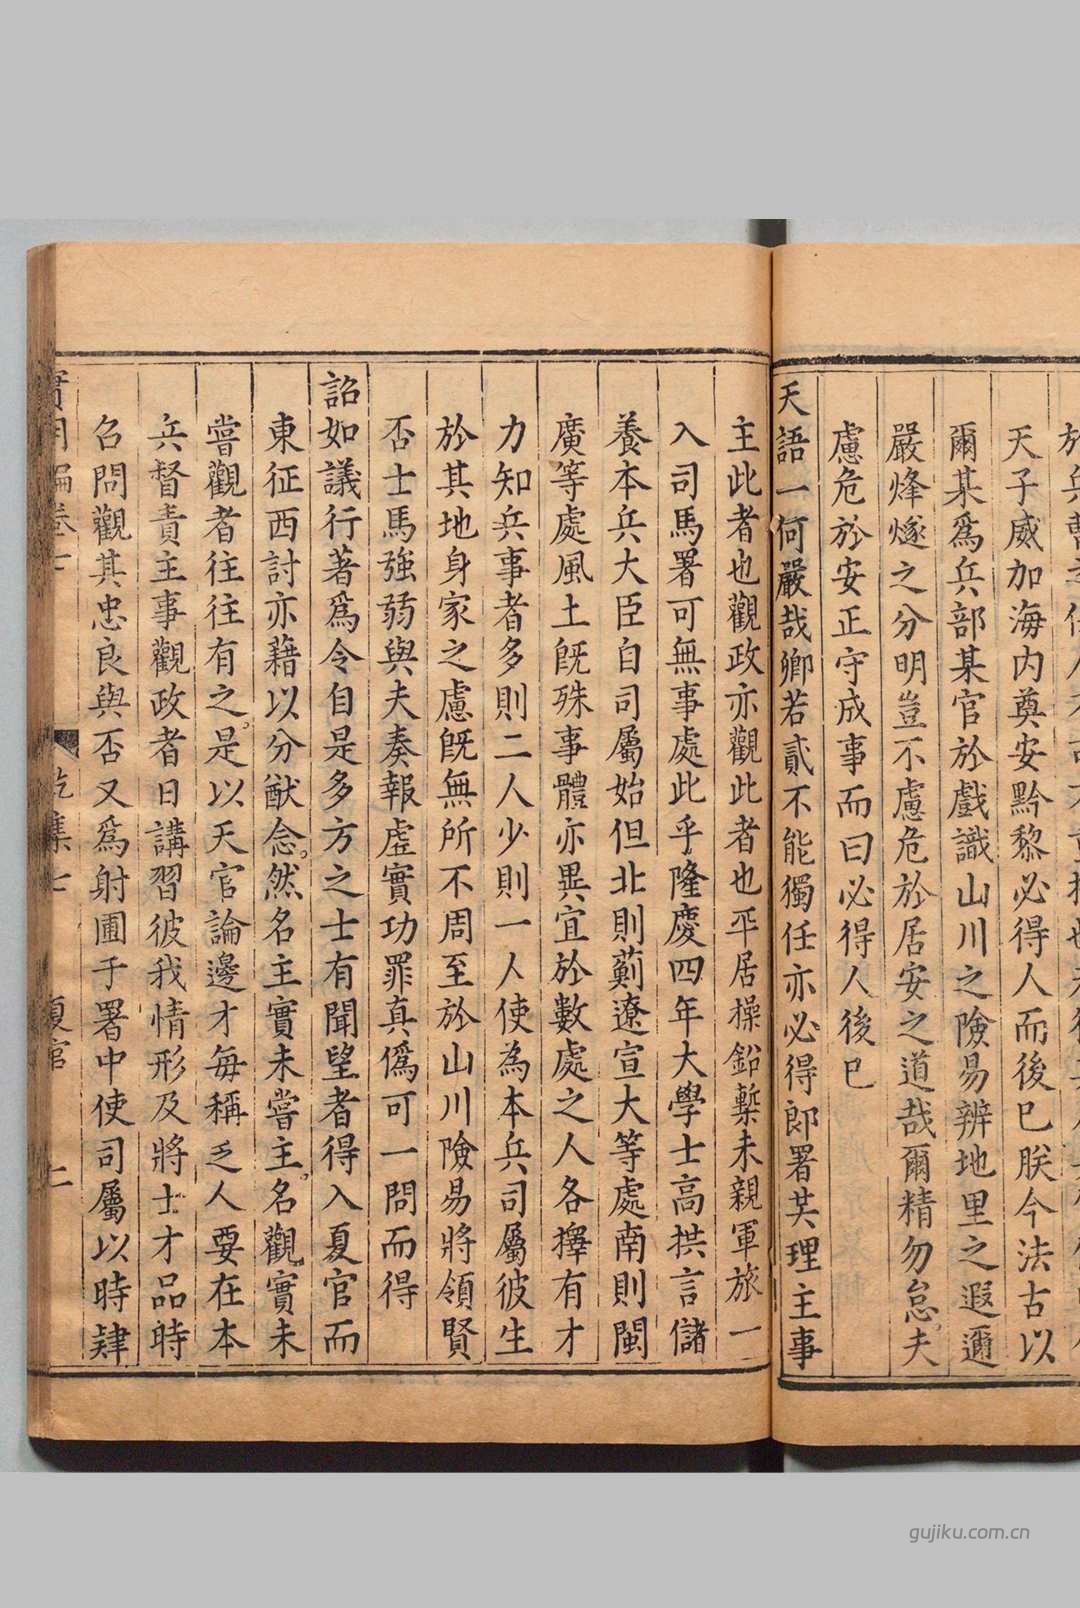 天子威加海內奠安黔黎必得人而後已朕今法古以
爾某爲兵部某官於戲識山川之險易辨地里之遐邇
嚴烽燧之分明豈不慮危於居安之道哉爾精勿怠夫
慮危於安正守成事而曰必得人後已
天語一何嚴哉卿若貳不能獨任亦必得郎署其理主事
主此者也觀政亦觀此者也平居操鉛槧未親軍旅一
入司馬署可無事處此乎隆慶四年大學士高拱言儲
養本兵大臣自司屬始但北則薊遼宣大等處南則閩
廣等處風土旣殊事體亦異宜於數處之人各擇有才
力知兵事者多則二人少則一人使為本兵司屬彼生
於其地身家之慮旣無所不周至於山川險易將領賢
否士馬強弱與夫奏報虛實功罪真僞可一問而得
詔如議行著爲令自是多方之士有聞望者得入夏官而
東征西討亦藉以分猷念然名主實未嘗主名觀實未
嘗觀者往往有之是以天官論邊才每稱乏人要在本
兵督責主事觀政者日講習彼我情形及將士才品時
召問觀其忠良與否又爲射圃于署中使司屬以時肄
卷 乾集七 夏官
gujiku.com.cn